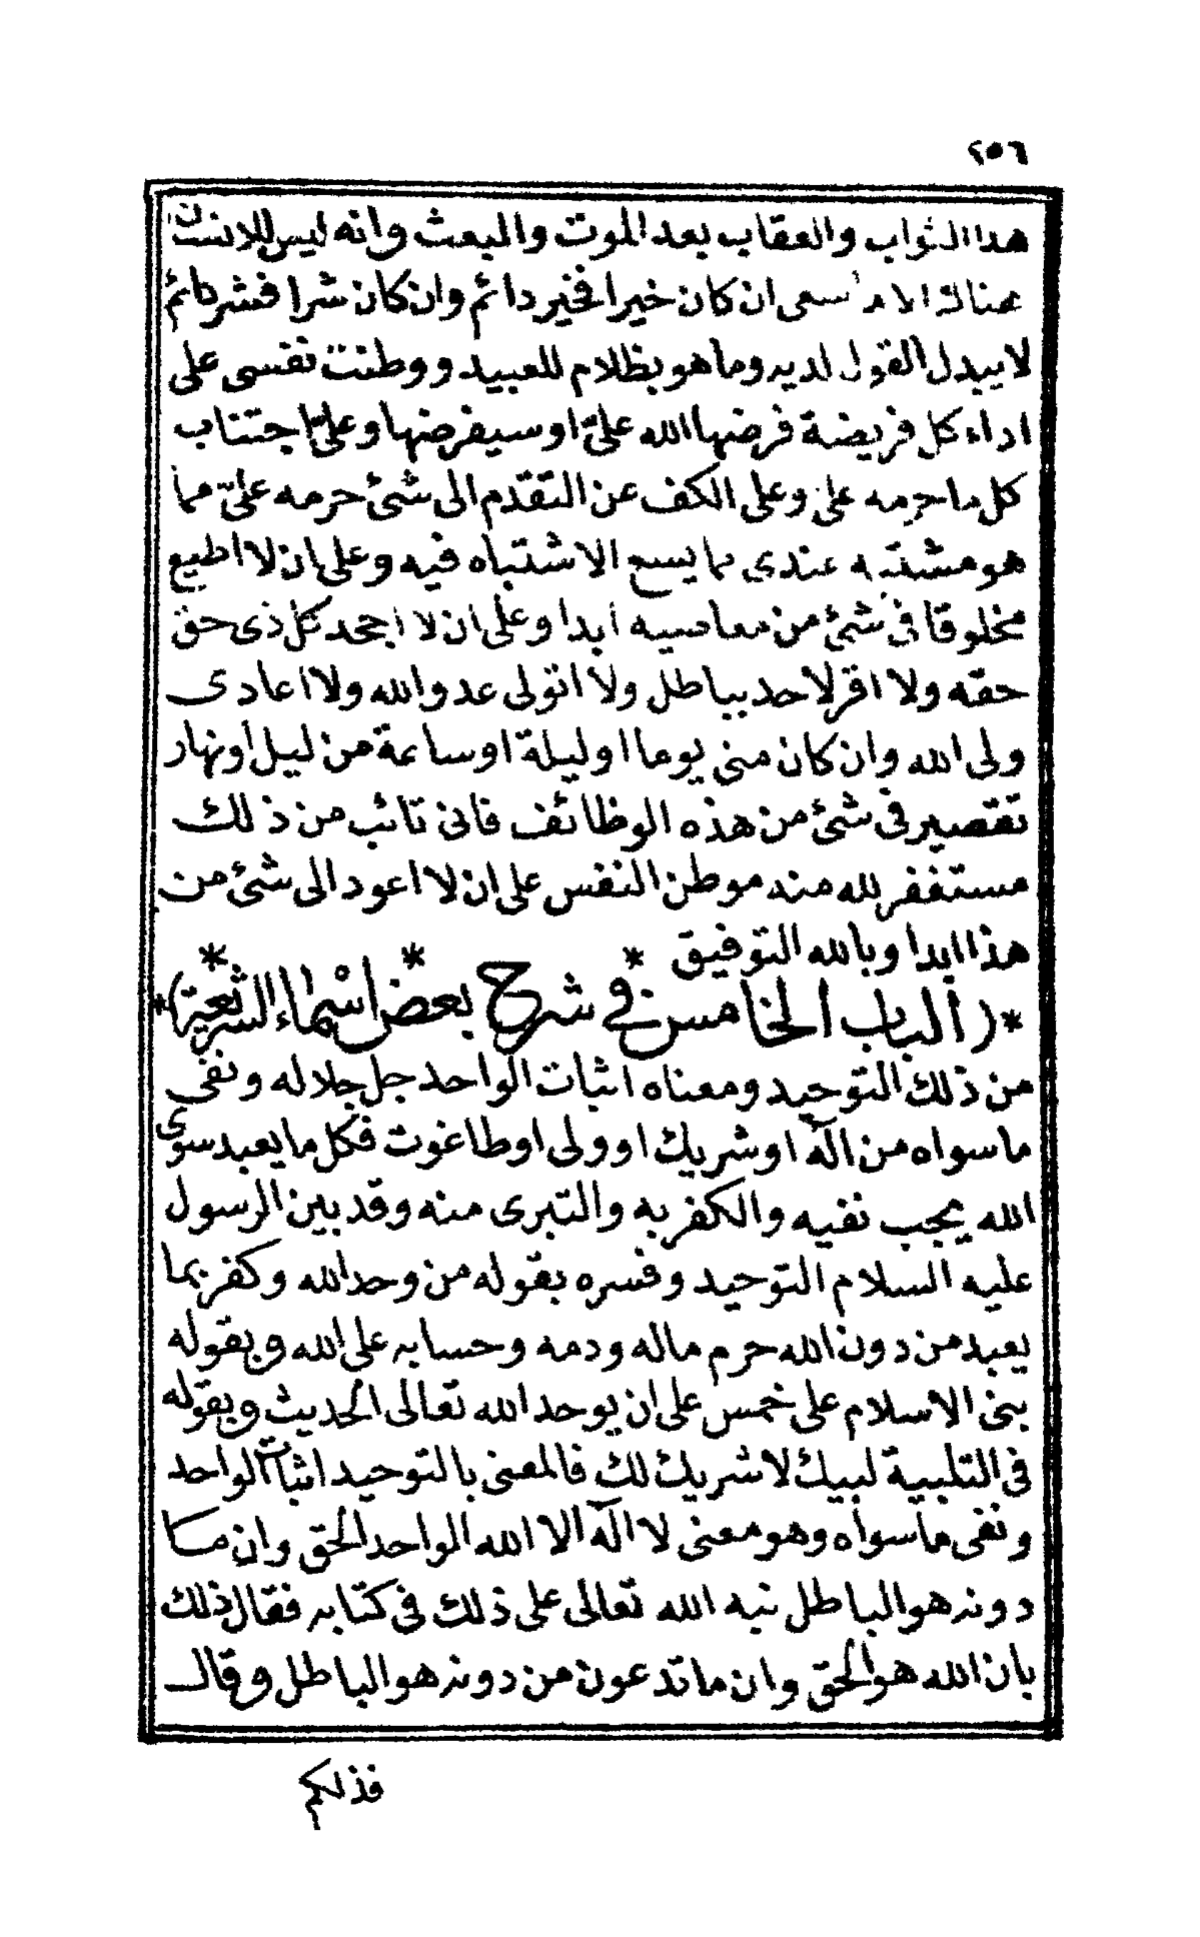 ٢٥٦
هذا الثواب والعقاب بعد الموت والمبعث وانه ليس للانسان
هناك الا ما سعى ان كان خيرا فخير دائم وان كان شرا فشر دائم
لا يبدل القول لديه وما هو بظلام للعبيد ووطنت نفسى على
اداء كل فريضة فرضها الله علىّ او سيفرضها وعلىّ اجتناب
كل ما حرمه على وعلى الكف عن التقدم الى شئ حرمه علىّ مما
هو مشتبه عندى مما يسع الاشتباه فيه وعلى ان لا اطيع
مخلوقا فى شئ من معاصيه ابدا وعلى ان لا اجحد كل ذى حق
حقه ولا اقر لاحد بباطل ولا اتولى عدو الله ولا اعادى
ولى الله وان كان منى يوما او ليلة او ساعة من ليل او نهار
تقصير فى شئ من هذه الوظائف فانى تائب من ذلك
مستغفر لله منه موطن النفس على ان لا اعود الى شئ من
هذا ابدا وبالله التوفيق
*(الباب الخامس * فى شرح * بعض اسماء الشرعية *)*
من ذلك التوحيد ومعناه اثبات الواحد جل جلاله ونفى
ما سواه من اله او شريك او ولى او طاغوت فكل ما يعبد سوى
الله يجب نفيه والكفر به والتبرى منه وقد بين الرسول
عليه السلام التوحيد وفسره بقوله من وحد الله وكفر بما
يعبد من دون الله حرم ماله ودمه وحسابه على الله وبقوله
بنى الاسلام على خمس على ان يوحد الله تعالى الحديث وبقوله
فى التلبية لبيك لا شريك لك فالمعنى بالتوحيد اثبات الواحد
ونفى ما سواه وهو معنى لا اله الا الله الواحد الحق وان ما
دونه هو الباطل نبه الله تعالى على ذلك فى كتابه فقال ذلك
بان الله هو الحق وان ما تدعون من دونه هو الباطل وقال
فذلكم